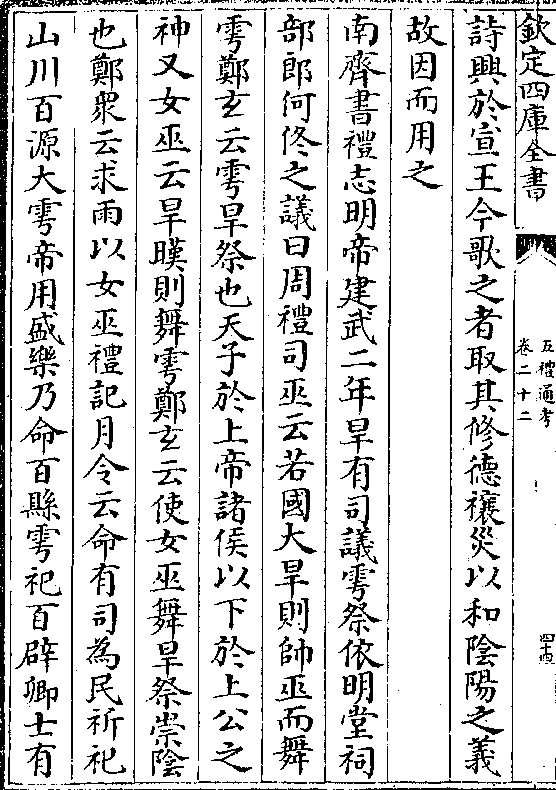 欽定四庫全書
五禮通考
卷二十二
四十四
詩興於宣王今歌之者取其修德禳災以和陰陽之義
故因而用之
南齊書禮志明帝建武二年旱有司議雩祭依明堂祠
部郎何佟之議曰周禮司巫云若國大旱則帥巫而舞
雩鄭玄云雩旱祭也天子於上帝諸侯以下於上公之
神又女巫云旱暵則舞雩鄭玄云使女巫舞旱祭崇陰
也鄭衆云求雨以女巫禮記月令云命有司為民祈祀
山川百源大雩帝用盛樂乃命百縣雩祀百辟卿士有